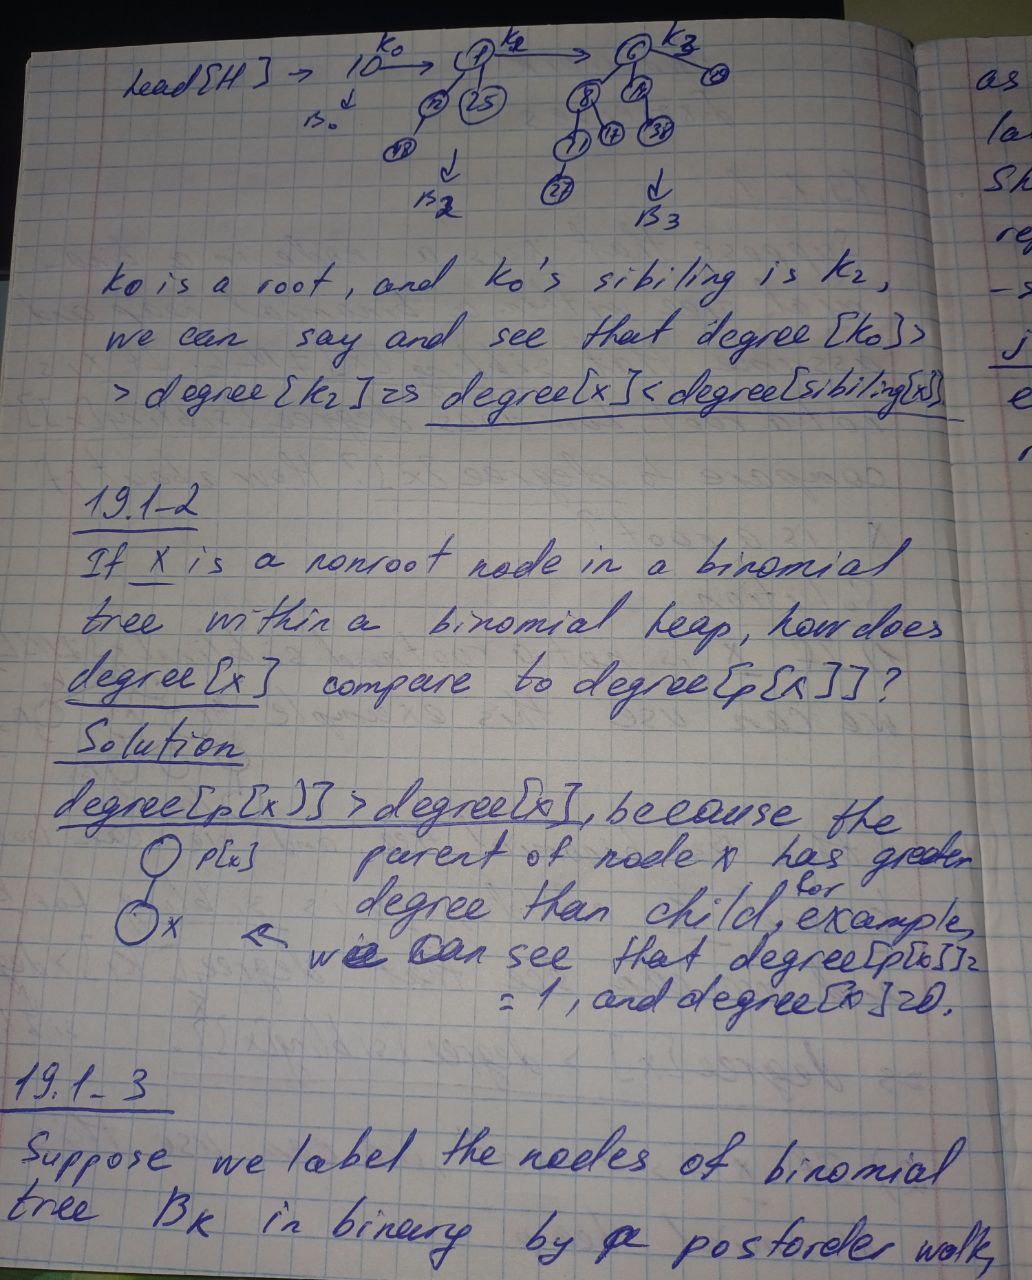 head[H] → 10 K₀ → 1 K₂ → 6 K₃
12 25 8 14 29
18 11 17 38
27
B₀ B₂ B₃
K₀ is a root, and K₀'s sibiling is K₂,
we can say and see that degree [K₀] >
> degree [K₂] => degree[x] < degree[sibiling[x]]
19.1-2
If x is a nonroot node in a binomial
tree within a binomial heap, how does
degree[x] compare to degree[p[x]]?
Solution
degree[p[x]] > degree[x], because the
p[x] parent of node x has greater
degree than child, for example,
x ← we can see that degree[p[x]]=
= 1, and degree[x]=0.
19.1-3
Suppose we label the nodes of binomial
tree Bk in binary by a postorder walk,
as
la
Sh
re
-s
e